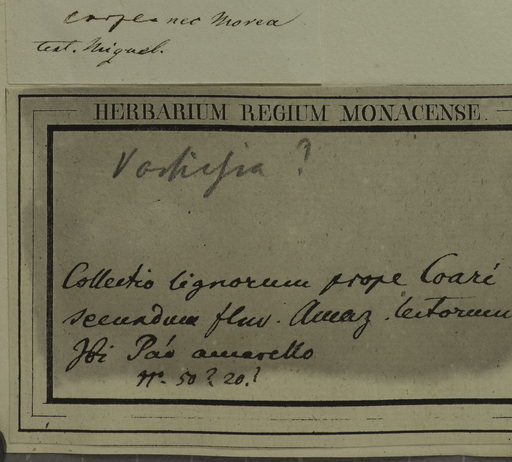 nec Morea
test. Miquel.
HERBARIUM REGIUM MONACENSE.
?
Collectio lignorum prope Coari
secundum fluv. Amaz. lectorum
Ibi Páo amarello
Nr. 50? 20.?